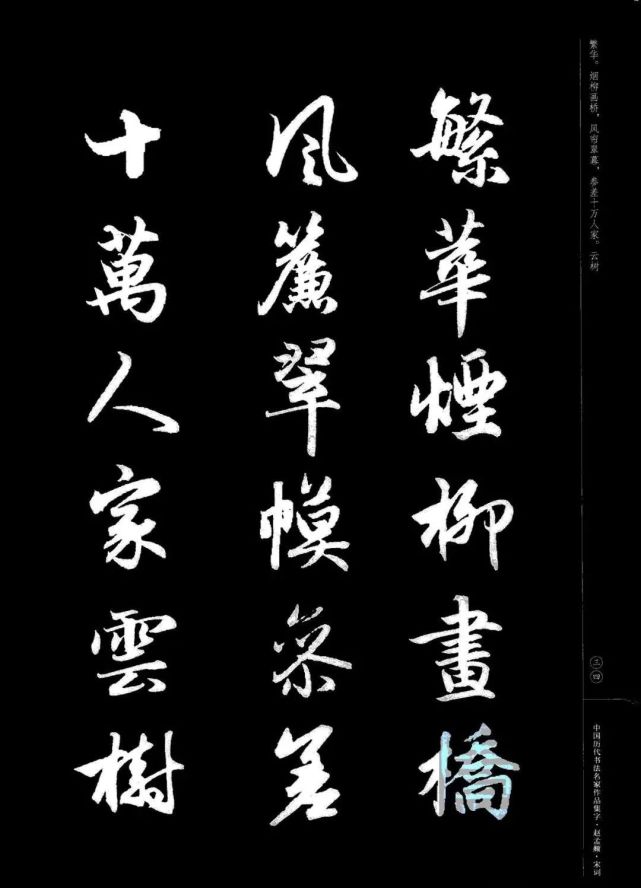 繁华。烟柳画桥，风帘翠幕，参差十万人家。云树
繁華煙柳畫橋
風簾翠幙參差
十萬人家雲樹
三四
中国历代书法名家作品集字·赵孟頫·宋词